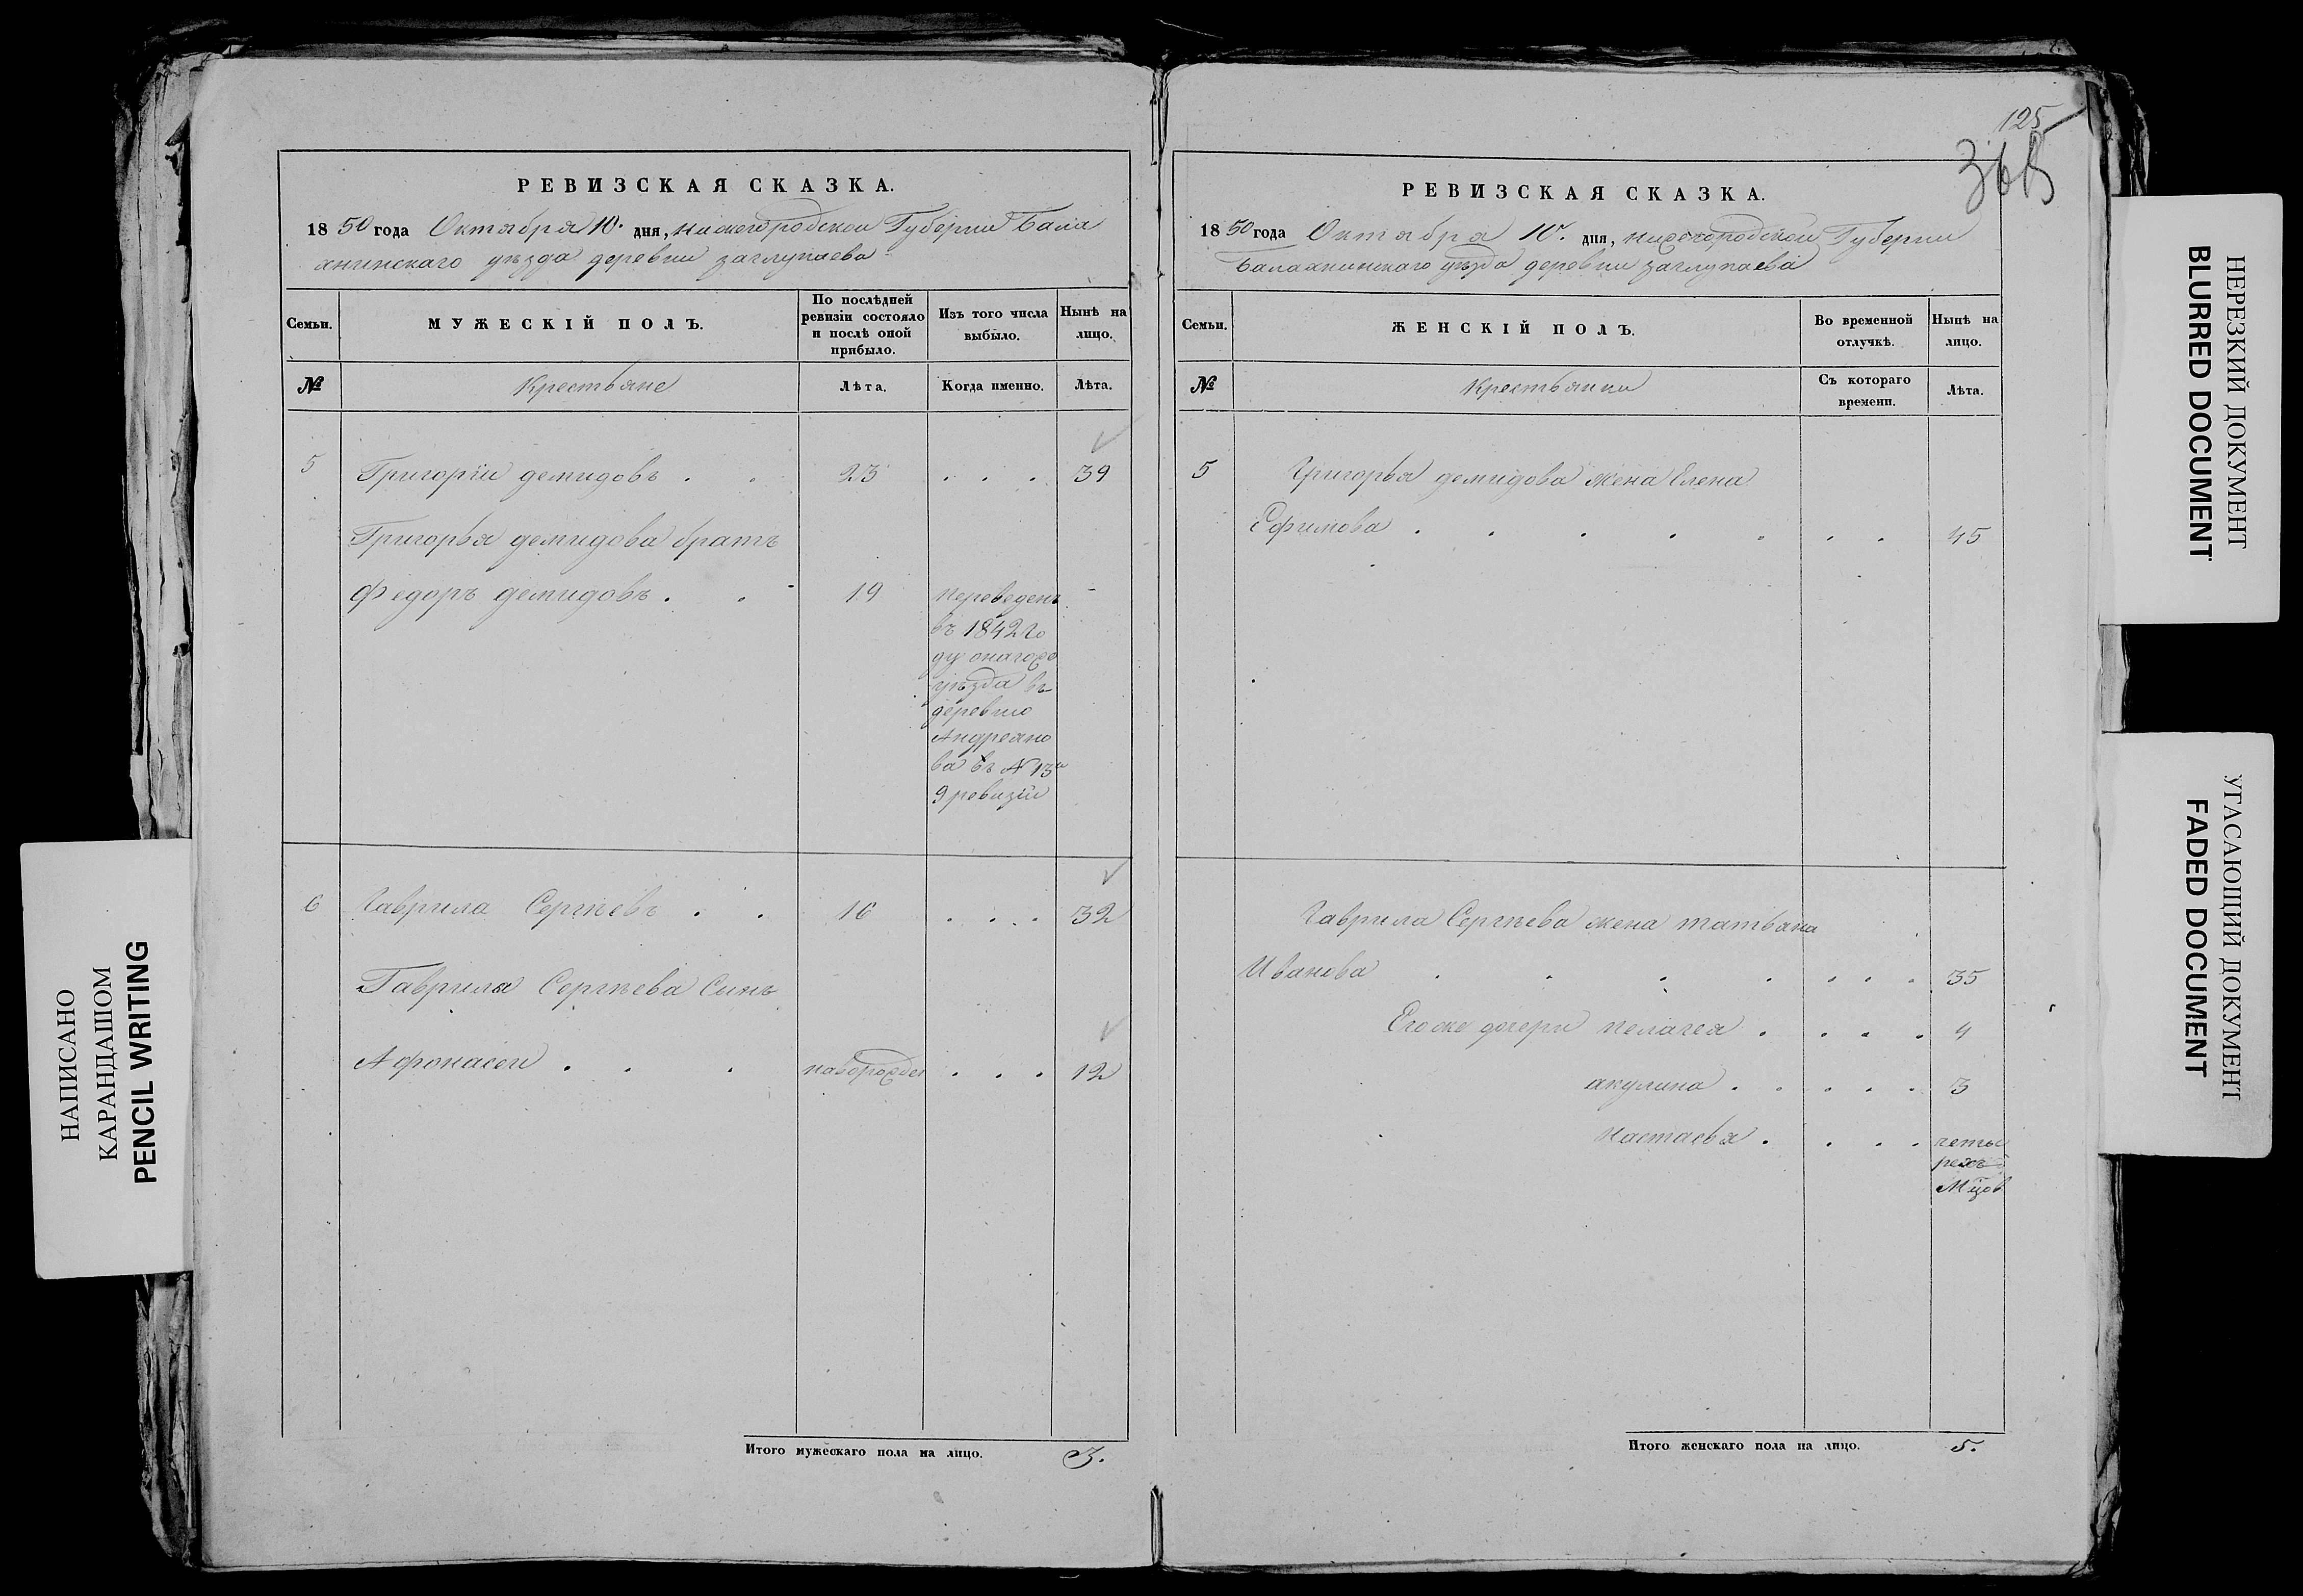 РЕВИЗСКАЯ СКАЗКА.
1850 года Октября 10. дня, нижегородской Губернии Бала
хнинскаго уѣзда деревни заглупаева
Семьи.
МУЖЕСКІЙ ПОЛЪ.
По послѣдней
ревизіи состояло
и послѣ оной
прибыло.
Изъ того числа
выбыло.
Нынѣ на
лицо.
№
Крестьяне
Лѣта.
Когда именно.
Лѣта.
5 Григорій демидовъ . . 23 . . . 39
Григорья демидова братъ
Федоръ демидовъ . . 19 Переведенъ
въ 1842 го
ду онагоже
уѣзда въ
деревню
Андреяно
ва въ № 13й
9 ревизіи
6 Гаврила Сергѣевъ . . 16 . . . 32
Гаврила Сергѣева Сынъ
Афонасеи . . . новорожден . . . 12
Итого мужескаго пола на лицо. 3.
125
РЕВИЗСКАЯ СКАЗКА.
1850 года Октября 10. дня, нижегородской Губернии
Балахнинскаго уѣзда деревни заглупаева
Семьи.
ЖЕНСКІЙ ПОЛЪ.
Во временной
отлучкѣ.
Нынѣ на
лицо.
№
Крестьянки
Съ котораго
времени.
Лѣта.
5 Григорья демидова жена Елена
Ефимова . . . . . . . 45
Гаврила Сергѣева жена татьяна
Иванова . . . . . . . 35
Егоже дочери пелагея . . . . 4
акулина . . . . . 3
Настасья . . . . четы
рехъ
Мцов
Итого женскаго пола на лицо. 5.
НАПИСАНО
КАРАНДАШОМ
PENCIL WRITING
НЕРЕЗКИЙ ДОКУМЕНТ
BLURRED DOCUMENT
УГАСАЮЩИЙ ДОКУМЕНТ
FADED DOCUMENT